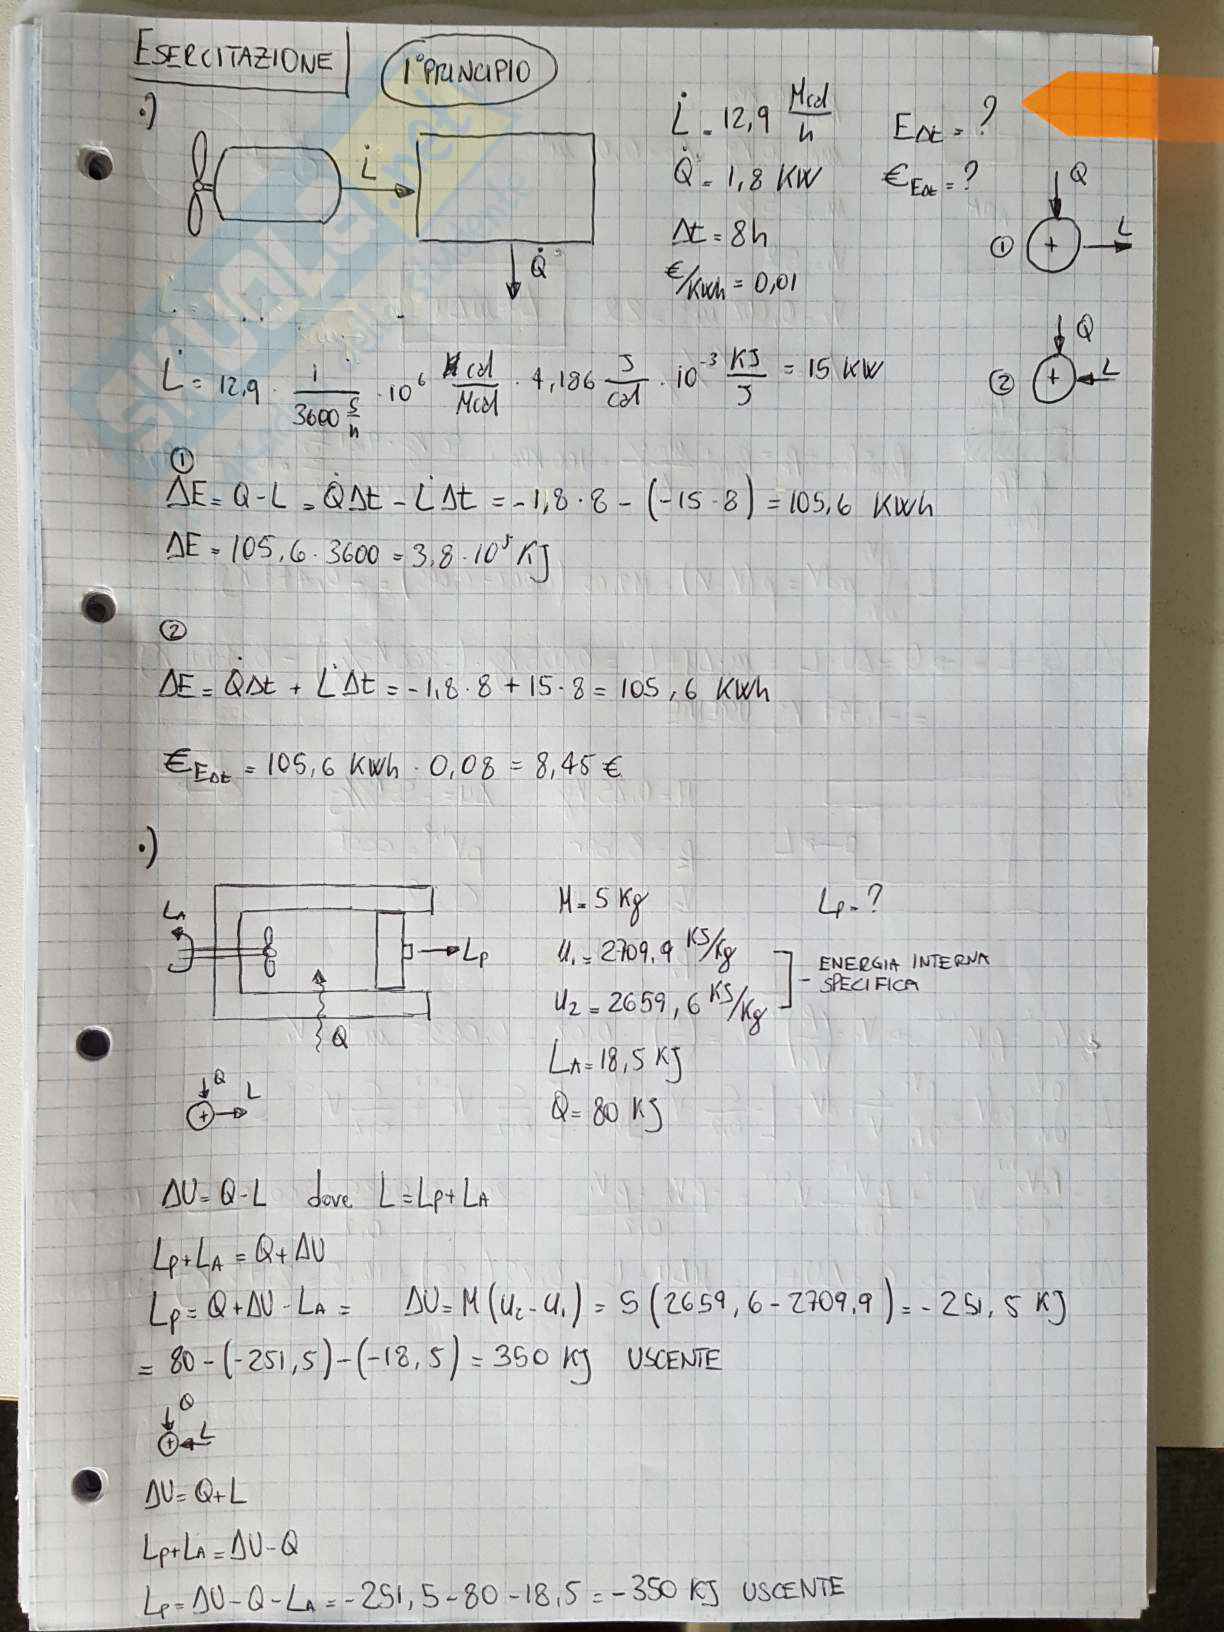 ESERCITAZIONE 1° PRINCIPIO
•)
L̇ = 12,9 Mcal/h
E∆t = ?
Q̇ = 1,8 KW
€E∆t = ?
∆t = 8h
€/Kwh = 0,01
L̇
Q̇
① + Q L
② + Q L
L̇ = 12,9 · 1/3600 s/h · 10⁶ cal/Mcal · 4,186 J/cal · 10⁻³ KJ/J = 15 KW
①
∆E = Q - L = Q̇∆t - L̇∆t = -1,8 · 8 - (-15 · 8) = 105,6 KWh
∆E = 105,6 · 3600 = 3,8 · 10⁵ KJ
②
∆E = Q̇∆t + L̇∆t = -1,8 · 8 + 15 · 8 = 105,6 KWh
€E∆t = 105,6 KWh · 0,08 = 8,45 €
•)
LA
LP
Q
M = 5 Kg
LP = ?
u₁ = 2709,9 KJ/Kg
u₂ = 2659,6 KJ/Kg
ENERGIA INTERNA
SPECIFICA
LA = 18,5 KJ
Q = 80 KJ
Q + L
∆U = Q - L dove L = LP + LA
LP + LA = Q + ∆U
LP = Q + ∆U - LA = ∆U = M (u₂ - u₁) = 5 (2659,6 - 2709,9) = -251,5 KJ
= 80 - (-251,5) - (-18,5) = 350 KJ USCENTE
Q + L
∆U = Q + L
LP + LA = ∆U - Q
LP = ∆U - Q - LA = -251,5 - 80 - 18,5 = -350 KJ USCENTE